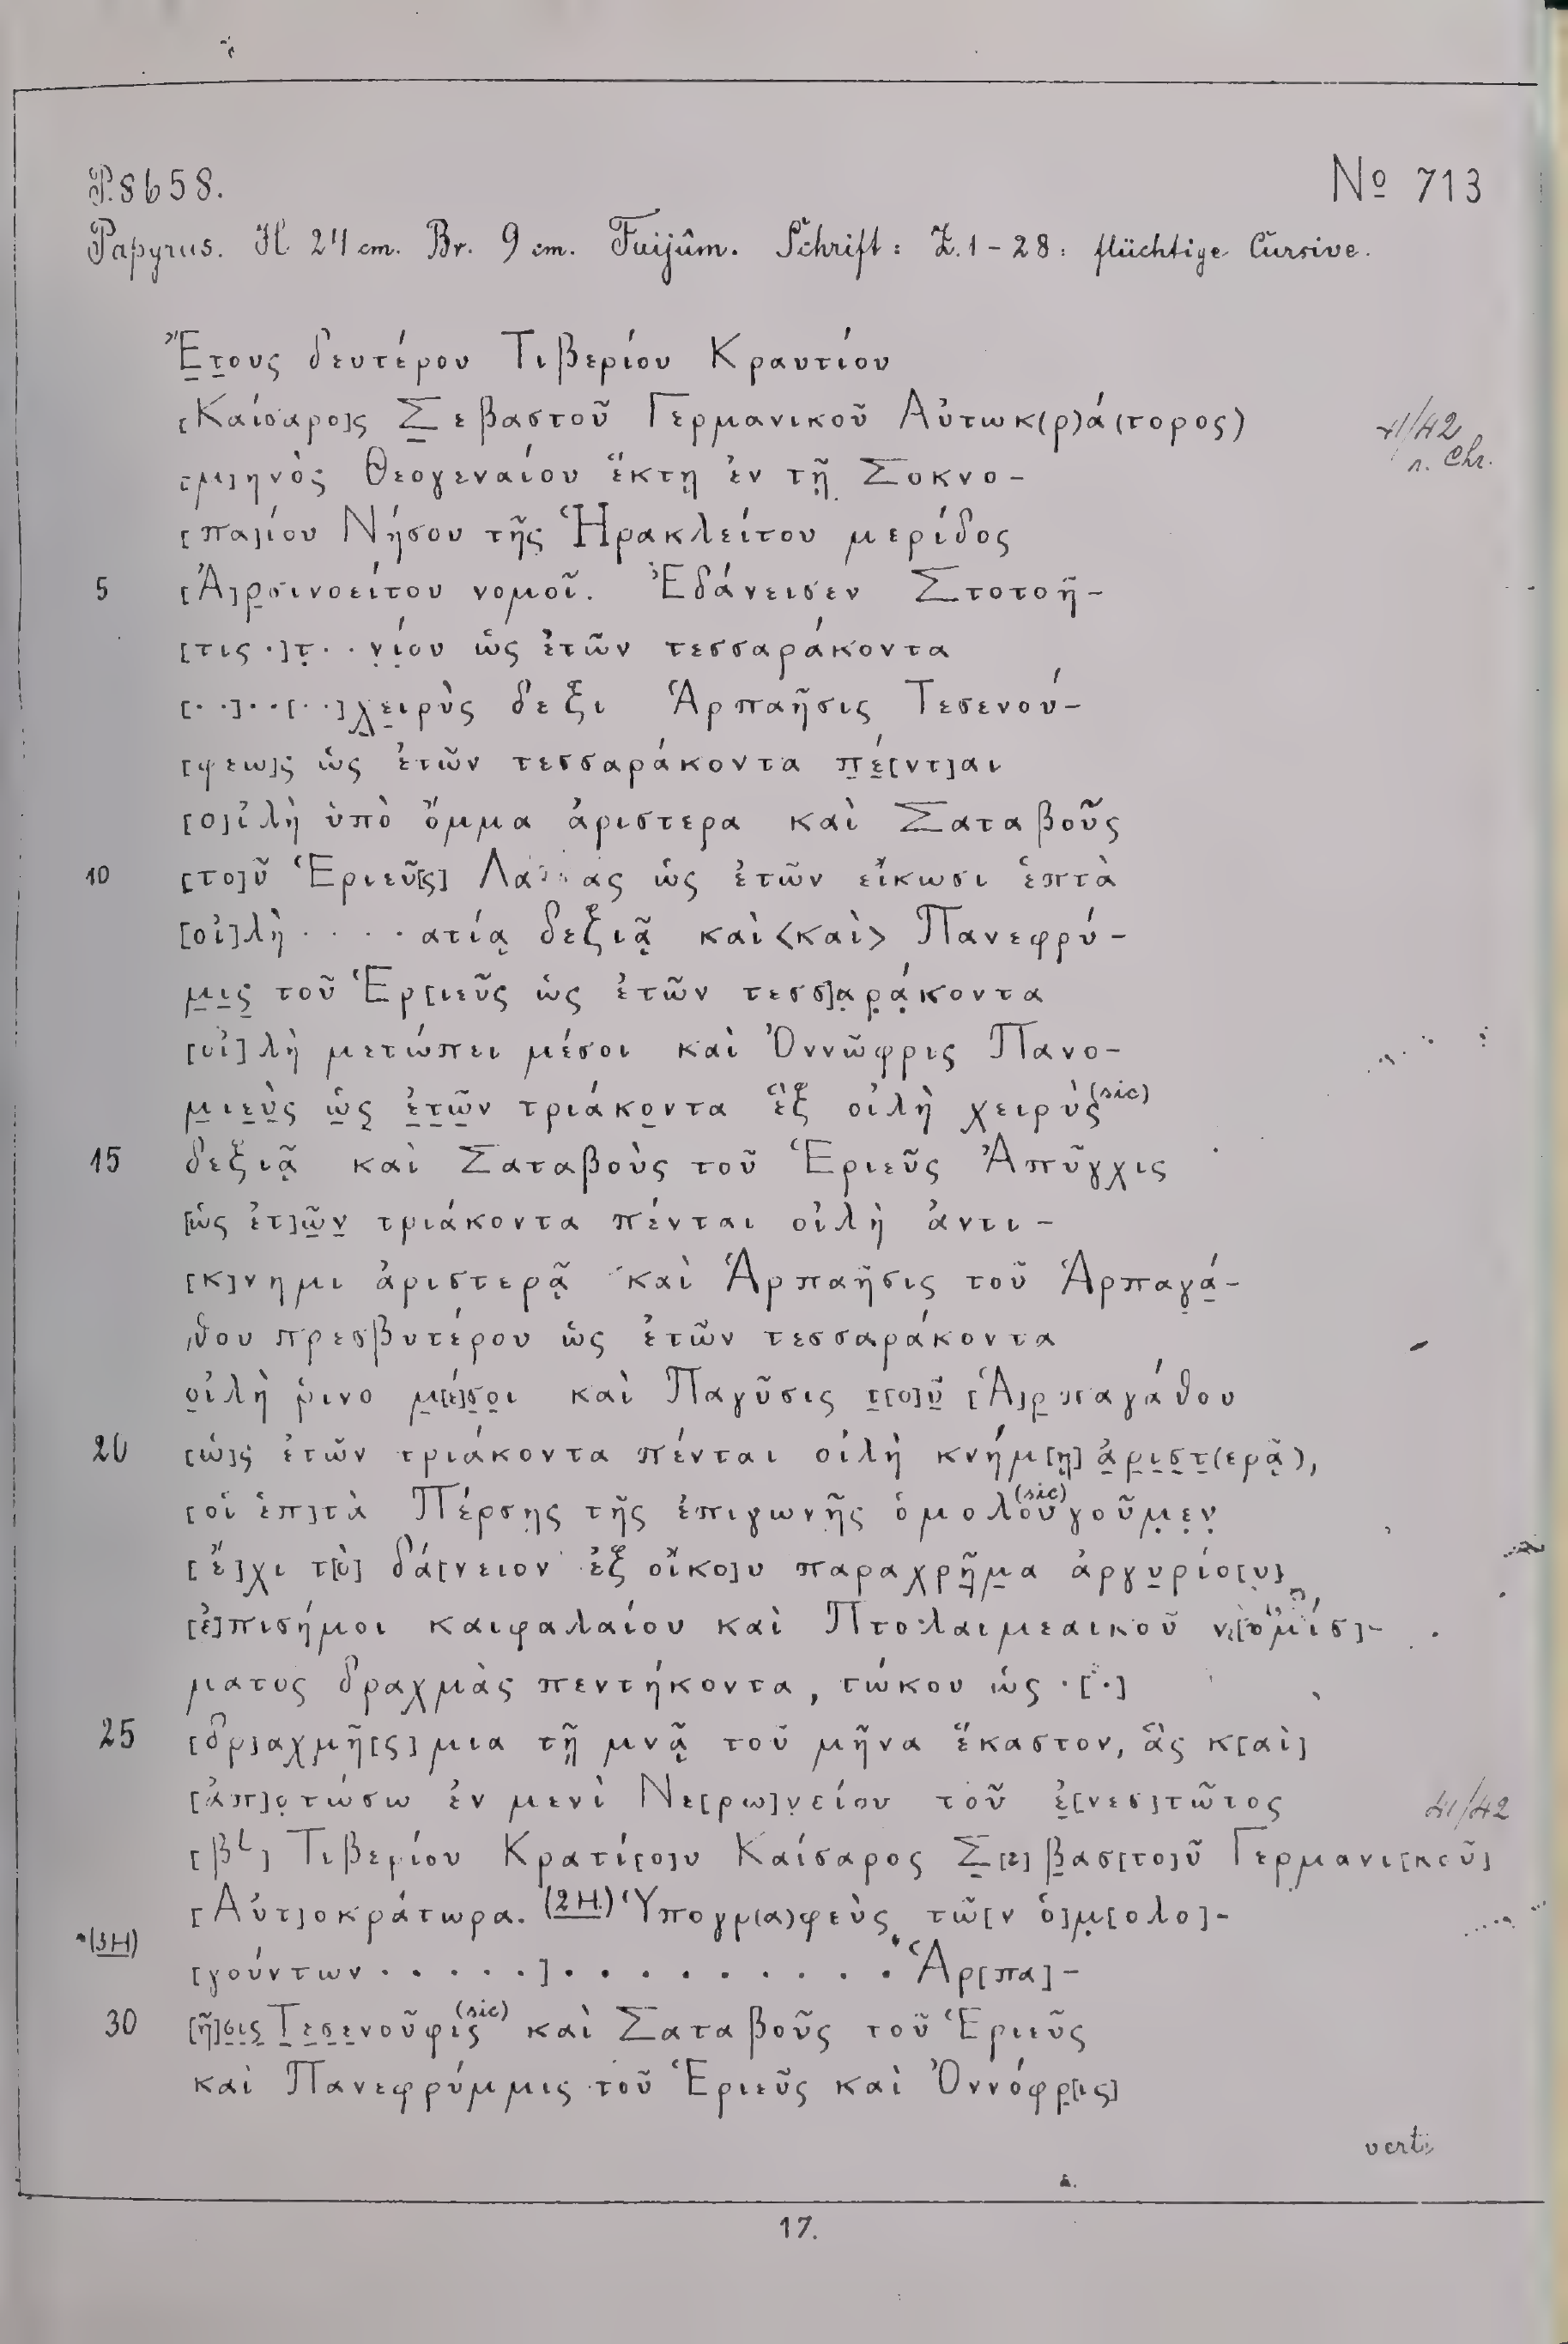 P.8658.
No 713
Papyrus. H. 24 cm. Br. 9 cm. Faijûm. Schrift: Z. 1-28: flüchtige Cursive.
Ἔ̲τ̲ους δευτέρου Τιβερίου Κραυτίου
[Καίσαρο]ς Σ̲εβαστοῦ Γερμανικοῦ Αὐτωκ(ρ)ά(τορος)
41/42
n. Chr.
[μ]ηνὸς Θεογεναίου ἕκτῃ ἐν τῇ Σοκνο-
[πα]ίου Νήσου τῆς Ἡρακλείτου μερίδος
5 [Ἀ]ρ̲σινοείτου νομοῖ. Ἐδάνεισεν Στοτοῆ-
[τις ·]τ̣ · · ν̣ί̣ου ὡς ἐτῶν τεσσαράκοντα
[· ·] · · [· ·]χ̲ε̲ιρὺς δεξι Ἁρπαῆσις Τεσενού-
[φεω]ς ὡς ἐτῶν τεσσαράκοντα π̲έ̲[ντ]αι
[ο]ἰλὴ ὑπὸ ὄμμα ἀριστερα καὶ Σαταβοῦς
10 [το]ῦ Ἑριεῦ[ς] ὡς ἐτῶν εἴκωσι ἑπτὰ
[οἰ]λὴ · · · · ατίᾳ δεξιᾷ καὶ <καὶ> Πανεφρύ-
μ̲ι̲ς̲ τοῦ Ἑρ[ιεῦς ὡς ἐτῶν τεσσ]α̣ρ̣ά̣κοντα
[οἰ]λὴ μετώπει μέσοι καὶ Ὀννῶφρις Πανο-
μ̲ιε̲ὺ̲ς ὡ̲ς̲ ἐ̲τ̲ῶ̲ν τριάκο̲ντα ἓξ οἰλὴ χειρὺς (sic)
15 δεξιᾷ καὶ Σαταβοὺς τοῦ Ἑριεῦς Ἀπῦγχις
[ὡς ἐτ]ῶ̲ν̲ τριάκοντα πένται οἰλὴ ἀντι-
[κ]νημι ἀριστερᾷ καὶ Ἁρπαῆσις τοῦ Ἁρπαγ̣ά̲-
θου πρεσβυτέρου ὡς ἐτῶν τεσσαράκοντα
ο̲ἰλὴ ῥινο μ̲[έ]σ̲ο̲ι καὶ Παγῦσις τ̲[ο]ῦ̲ [Ἁ]ρ̲παγάθου
20 [ὡ]ς ἐτῶν τριάκοντα πένται οἰλὴ κνήμ[ῃ] ἀ̲ρ̲ι̲σ̲τ̲(ερᾷ),
[οἱ ἑπ]τὰ Πέρσης τῆς ἐπιγωνῆς ὁμολουγοῦμ̣ε̣ν̣ (sic)
[ἔ]χι τ[ὸ] δά[νειον ἐξ οἴκο]υ παραχρῆ̲μ̲α ἀργυ̲ρίο[υ]
[ἐ]πισήμοι καιφαλαίου καὶ Πτολαιμεαικοῦ ν[ομίσ]-
ματος δραχμὰς πεντήκοντα, τώκου ὡς · [·]
25 [δρ]αχμῆ[ς] μια τῇ μνᾷ τοῦ μῆνα ἕκαστον, ἃς κ[αὶ]
[ἀπ]ο̣τώσω ἐν μενὶ Νε[ρω]ν̣είου τοῦ ἐ̲[νεσ]τῶτος
41/42
[β L] Τιβερίου Κρατί[ο]υ Καίσαρος Σ̲[ε]β̲ασ[το]ῦ Γερμανι[κοῦ]
[Αὐτ]οκράτωρα. (2 H.) Ὑπογρ(α)φεὺς τῶ[ν ὁ]μ̣[ολο]-
*(3 H) [γούντων · · · · ·] · · · · · · · · · · * Ἁρ[πα]-
30 [ῆ]σ̲ι̲ς̲ Τ̲ε̲σ̲ε̲νοῦφις (sic) καὶ Σαταβοῦς τοῦ Ἑριεῦς
καὶ Πανεφρύμμις τοῦ Ἑριεῦς καὶ Ὀννόφρ̲[ις]
verte
17.